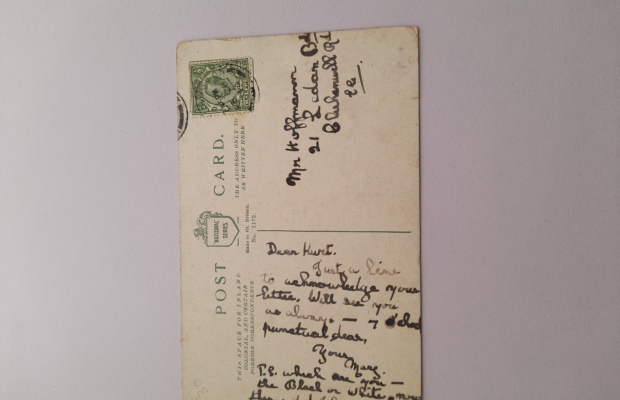 POST CARD.
THIS SPACE FOR INLAND
COLONIAL, AND CERTAIN
FOREIGN CORRESPONDENCE
NATIONAL SERIES
MADE IN GT. BRITAIN.
No. 1172.
THE ADDRESS ONLY TO
BE WRITTEN HERE
Mr Hoffmann
21
Clerkenwell Rd
EC
Dear Kurt.
Just a line
to acknowledge your
letter. Will see you
as always. — 7 o'clock
punctual dear,
Yours, Marg.
P.S. which are you —
the Black or White, now